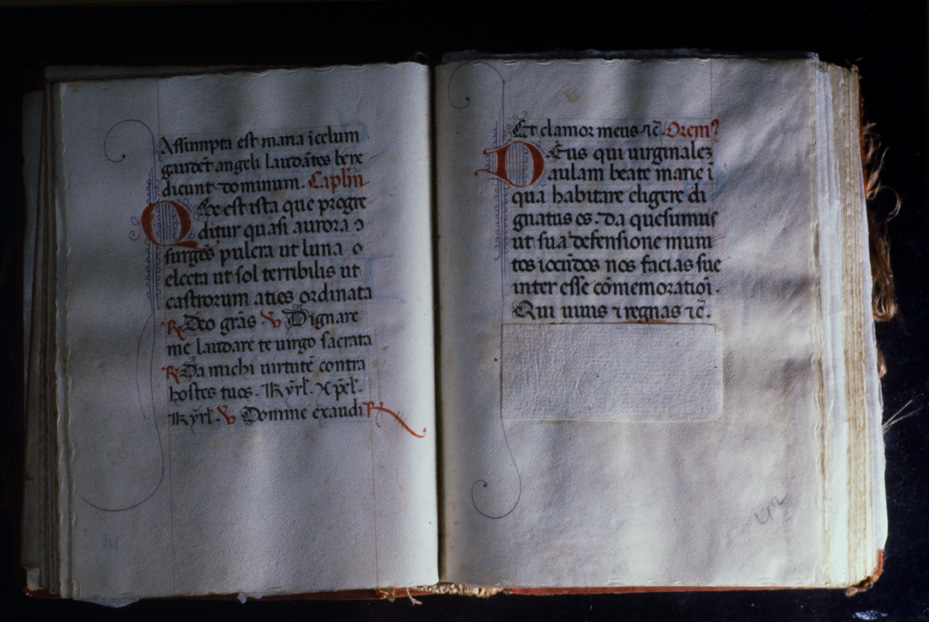 Assumpta est maria ĩ celum
gaudẽt angeli laudãtes bene
dicunt dominum. Caplm
Que est ista que progre
ditur quasi aurora ↄ
surgẽs pulcra ut luna
electa ut sol terribilis ut
castrorum aties ordinata
℟ Deo grãs ℣ Dignare
me laudare te uirgo sacrata
℟ Da michi uirtutẽ contra
hostes tuos. Kyrl. Xpel.
Kyrl. ℣ Domine exaudi ℟
Et clamor meus ⁊c̃. Orem⁹
Deus qui uirginalez
aulam beate marie ĩ
qua habitare eligere di
gnatus es. da quesumus
ut sua defensione muni
tos iocũdos nos facias sue
inter esse cõmemorationi.
Qui uiuis ⁊ regnas ⁊c̃.
42